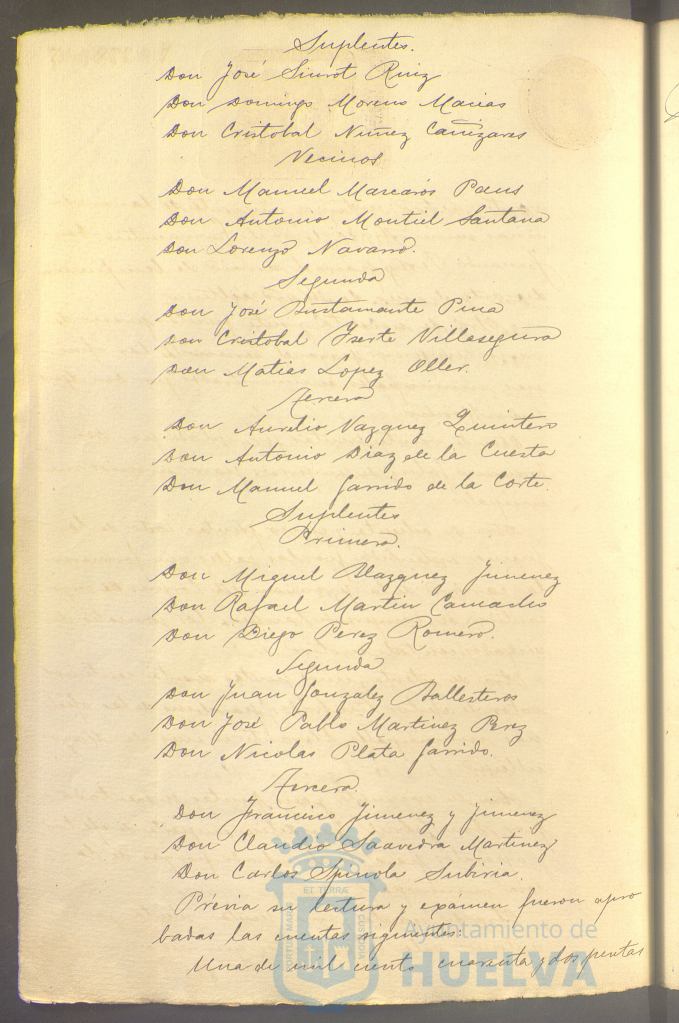 Suplentes.
Don José Siurot Ruiz
Don Domingo Moreno Macias
Don Cristobal Nuñez Cañizares
Vecinos
Don Manuel Mascarós Pons
Don Antonio Montiel Santana
Don Lorenzo Navarro.
Segunda
Don José Bustamante Pina
Don Cristobal Yserte Villasegura
Don Matias Lopez Oller.
Tercera
Don Aurelio Vazquez Quintero
Don Antonio Diaz de la Cuesta
Don Manuel Garrido de la Corte.
Suplentes
Primera.
Don Miguel Blazquez Jimenez
Don Rafael Martin Camacho
Don Diego Perez Romero.
Segunda
Don Juan Gonzalez Ballesteros
Don José Pablo Martinez Perez
Don Nicolas Plata Garrido.
Tercera.
Don Francisco Jimenez y Jimenez
Don Claudio Saavedra Martinez
Don Carlos Spinola Subiria.
Prévia su lectura y exámen fueron apro
badas las cuentas siguientes:
Una de mil ciento cuarenta y dos pesetas
Ayuntamiento de
HUELVA